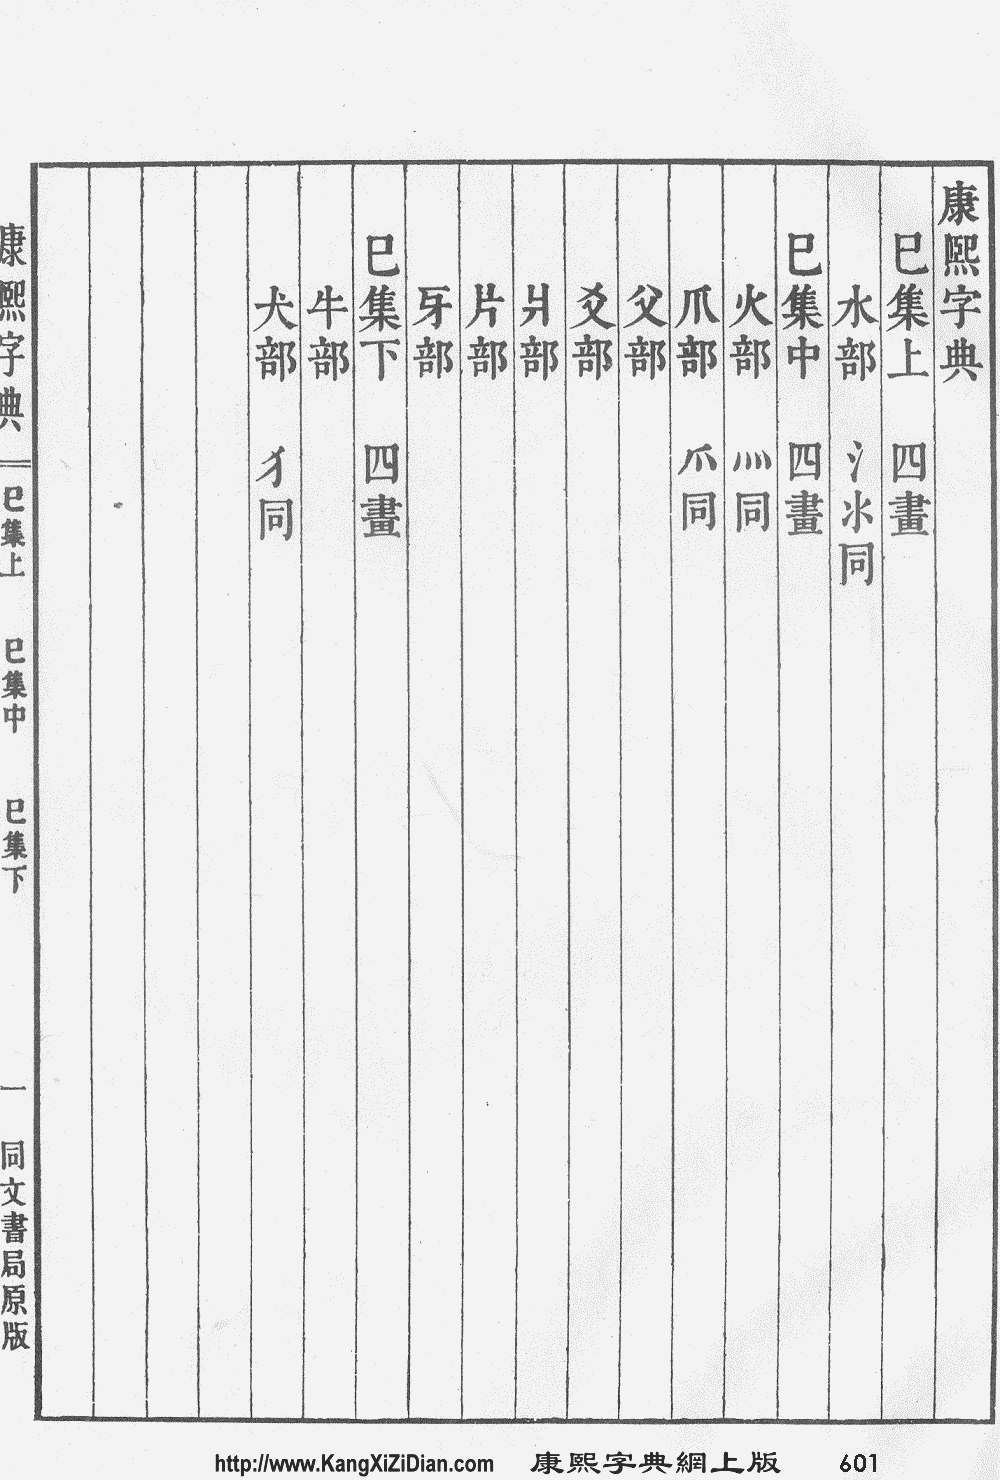 康熙字典
巳集上 四畫
水部 氵氺同
巳集中 四畫
火部 灬同
爪部 爫同
父部
爻部
爿部
片部
牙部
巳集下 四畫
牛部
犬部 犭同
康熙字典 巳集上 巳集中 巳集下 一 同文書局原版
http://www.KangXiZiDian.com 康熙字典網上版 601